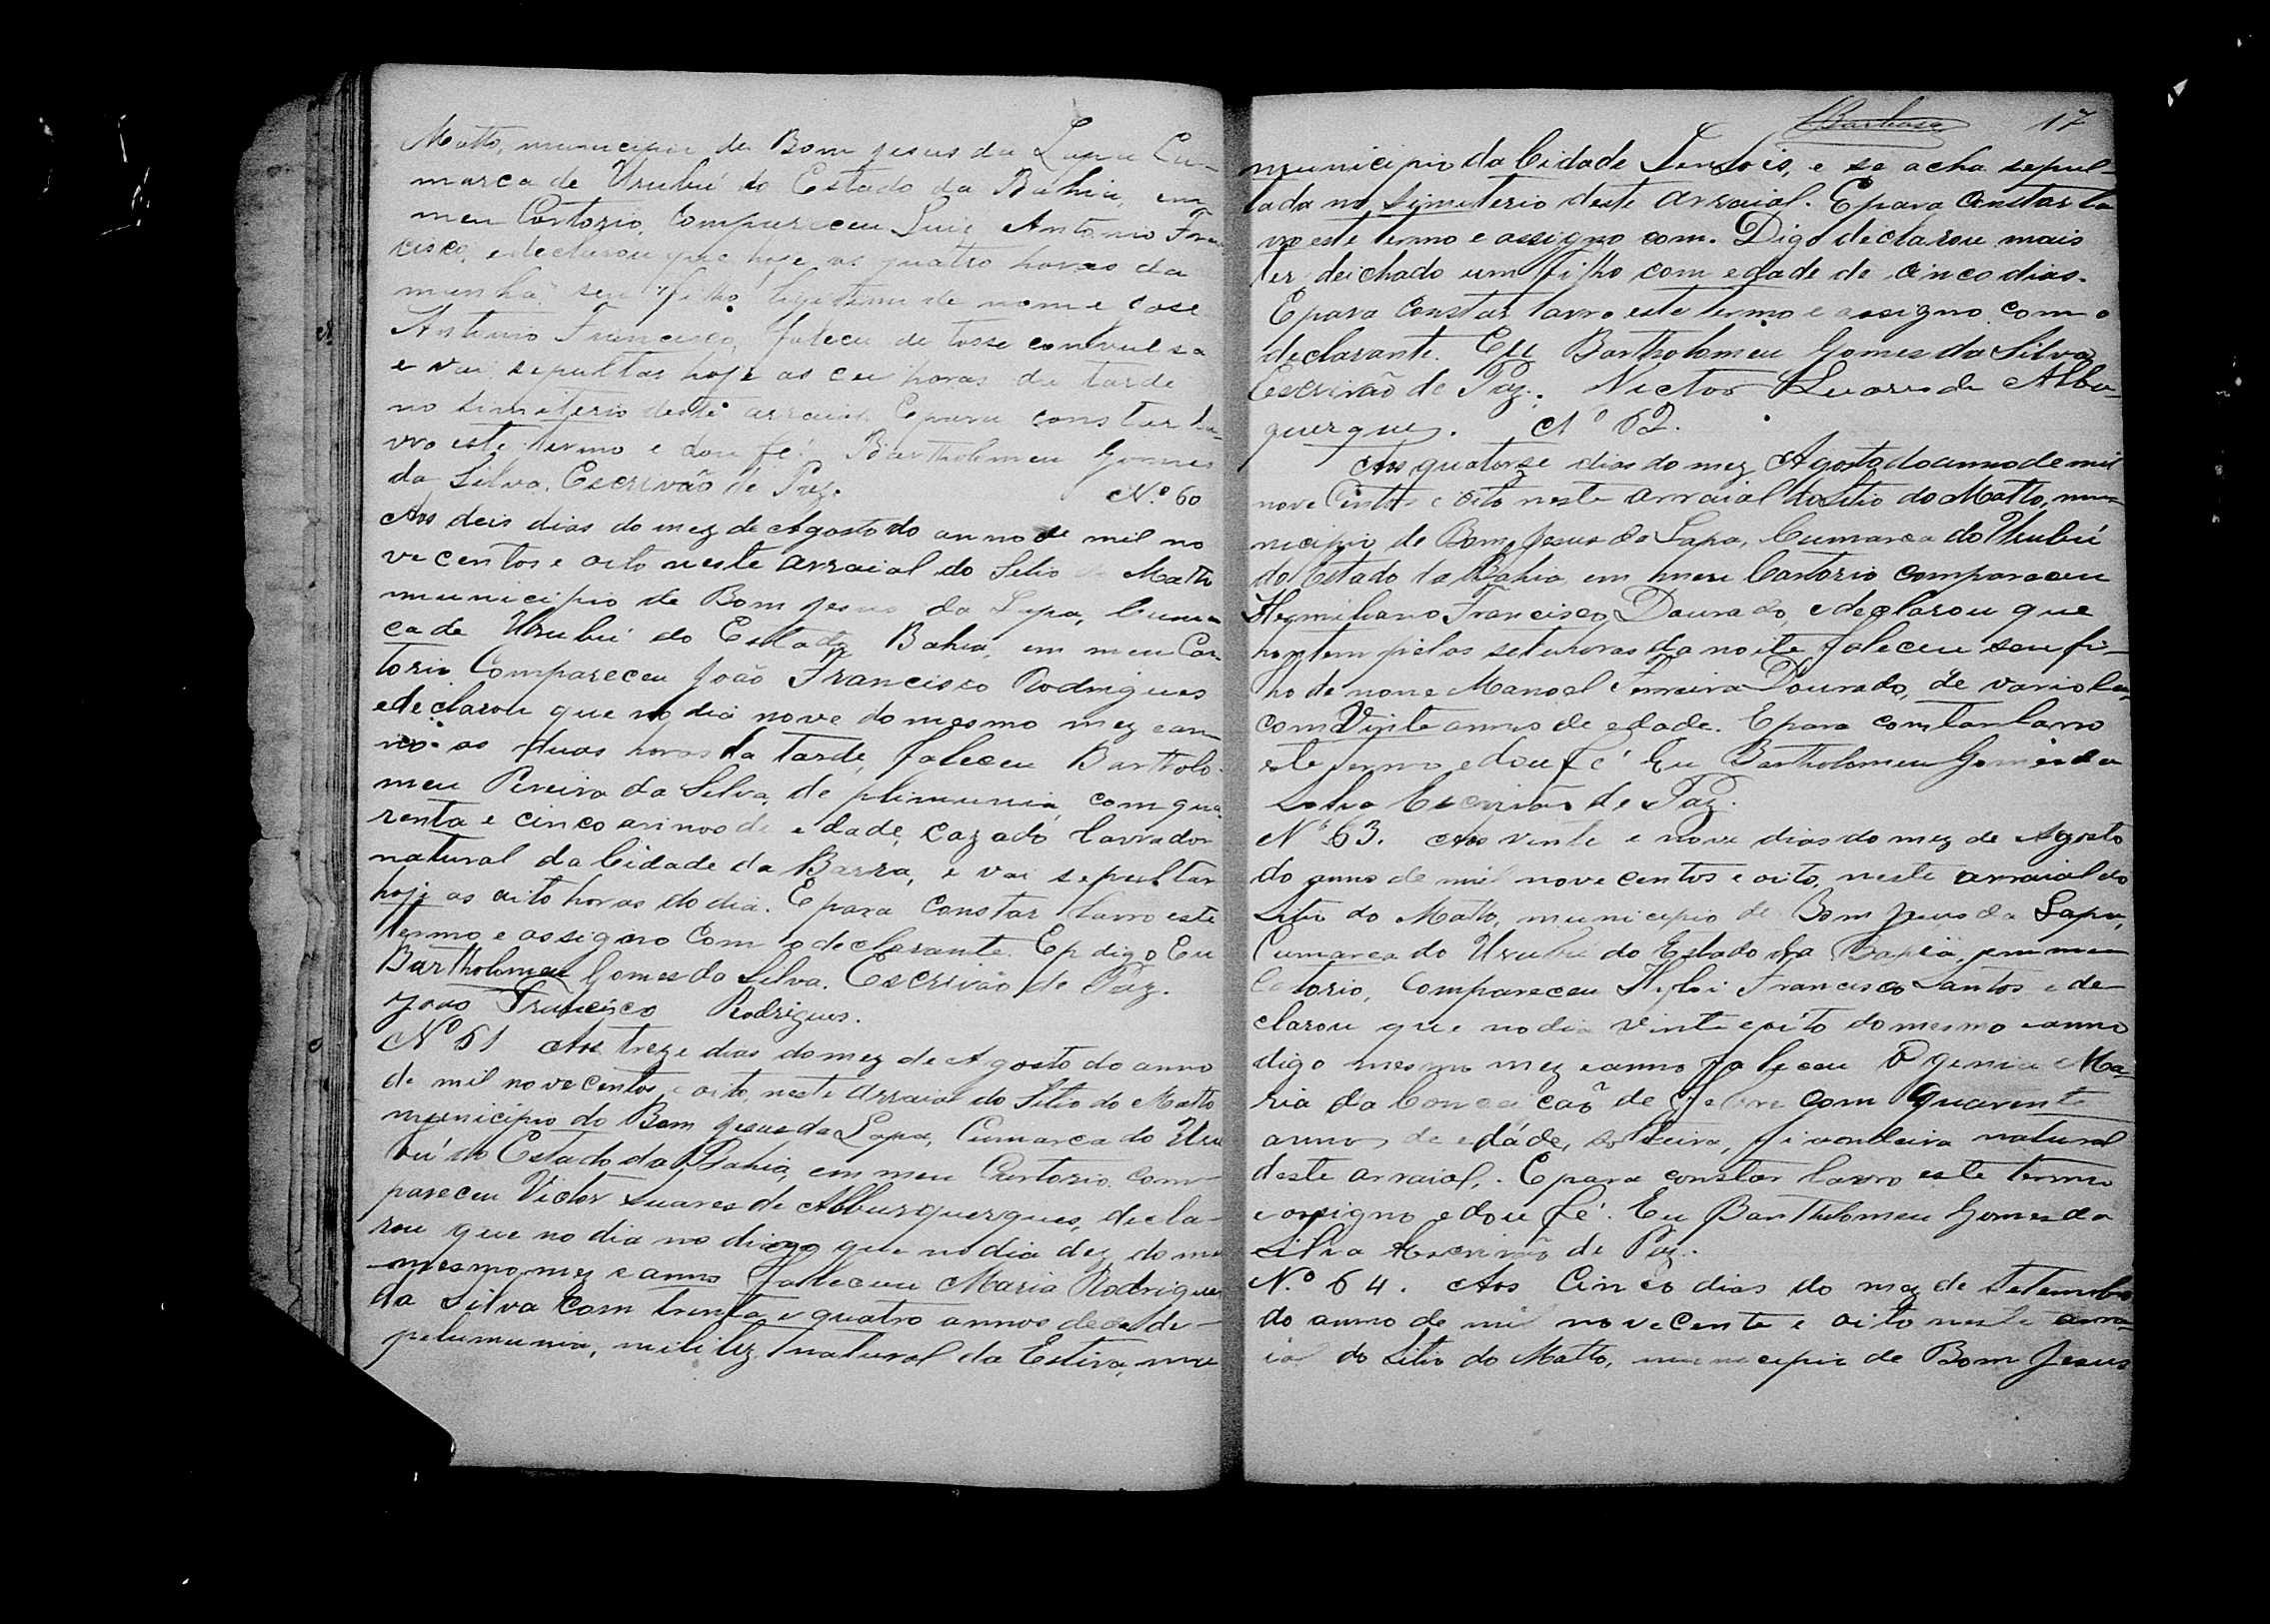 Matto, municipio de Bom Jesus da Lapa Cu-
marca de Urubú do Estado da Bahia, em
meu Cartorio, Compareceu Luis Antonio Fran
cisco, e declarou que hoje as quatro horas da
manhã, seu filho legitimo de nome José
Antonio Francisco, faleceu de tosse convulsa
e vai sepultar hoje as horas da tarde
no simiterio deste arraial. Epara constar la-
vro este termo e dou fé. Bartholomeu Gomes
da Silva. Escrivão de Paz.
Nº 60
Aos deis dias do mez de Agosto do anno de mil no
vecentos e oito neste arraial do Sitio do Matto
municipio de Bom Jesus da Lapa, Cumar
ca de Urubú do Estado Bahia, em meu Car
torio Compareceu João Francisco Rodrigues
e declarou que no dia nove do mesmo mez ean
no as duas horas da tarde, faleceu Bartholo-
meu Pereira da Silva, de plimunia, com qua
renta e cinco annos de edade, cazado lavrador
natural da Cidade da Barra, e vai sepultar
hoje as oito horas do dia. Epara constar lavro este
termo e assigno Com o declarante. Ep digo Eu
Bartholomeu Gomes da Silva. Escrivão de Paz.
João Francisco Rodrigues.
Nº 61 Aos treze dias do mez de Agosto do anno
de mil novecentos e oito, neste arraial do Sitio do Matto
municipio do Bom Jesus da Lapa, Cumarca do Uru
bú do Estado da Bahia, em meu Cartorio com-
pareceu Victor Suares de Alburquerques, decla-
rou que no dia no digo que no dia dez do me
mesmo mez e anno faleceu Maria Rodrigues
da Silva com trenta e quatro annos de edade
pelumunia, natural da Estiva, mu
Barbosa 17
municipio da Cidade Lensois, e se acha sepul-
tada no simiterio deste arraial. Epara Constar la
vro este termo e assigno com. Digo declarou mais
ter deichado um filho com edade de cinco dias.
Epara constar lavro este termo e assigno com o
declarante. Eu Bartholomeu Gomes da Silva
Escrivão de Paz. Victor Suares de Albu-
querques.
Nº 62.
Aos quatorze dias do mez Agosto do anno de mil
nove Centos e oito neste arraial do Sitio do Matto, mu-
nicipio de Bom Jesus da Lapa, Cumarca do Urubú
do Estado da Bahia, em meu Cartorio compareceu
Hermiliano Francisco Dourado, e declarou que
hontem pelas sete horas da noite faleceu seu fi-
lho de nome Manoel Ferreira Dourado, de variola
com Vinte annos de edade. Epara constar lavro
este termo e dou fé. Eu Bartholomeu Gomes da
Silva Escrivão de Paz.
Nº 63. Aos vinte e nove dias do mez de Agosto
do anno de mil novecentos e oito, neste arraial do
Sitio do Matto, municipio de Bom Jesus da Lapa,
Cumarca do Urubú do Estado da Bahia, em meu
Catorio, Compareceu Francisco Santos e de
clarou que no dia vinte e oito do mesmo e anno
digo mesmo mez e anno faleceu Ma-
ria da Conceição de febre com quarenta
annos de edade, solteira, natural
deste arraial. Epara constar lavro este termo
e assigno e dou fé. Eu Bartholomeu Gomes da
Silva Escrivão de Paz.
Nº 64. Aos Cinco dias do mez de Setembro
do anno de mil novecente e oito neste arra-
ial do Sitio do Matto, municipio de Bom Jesus